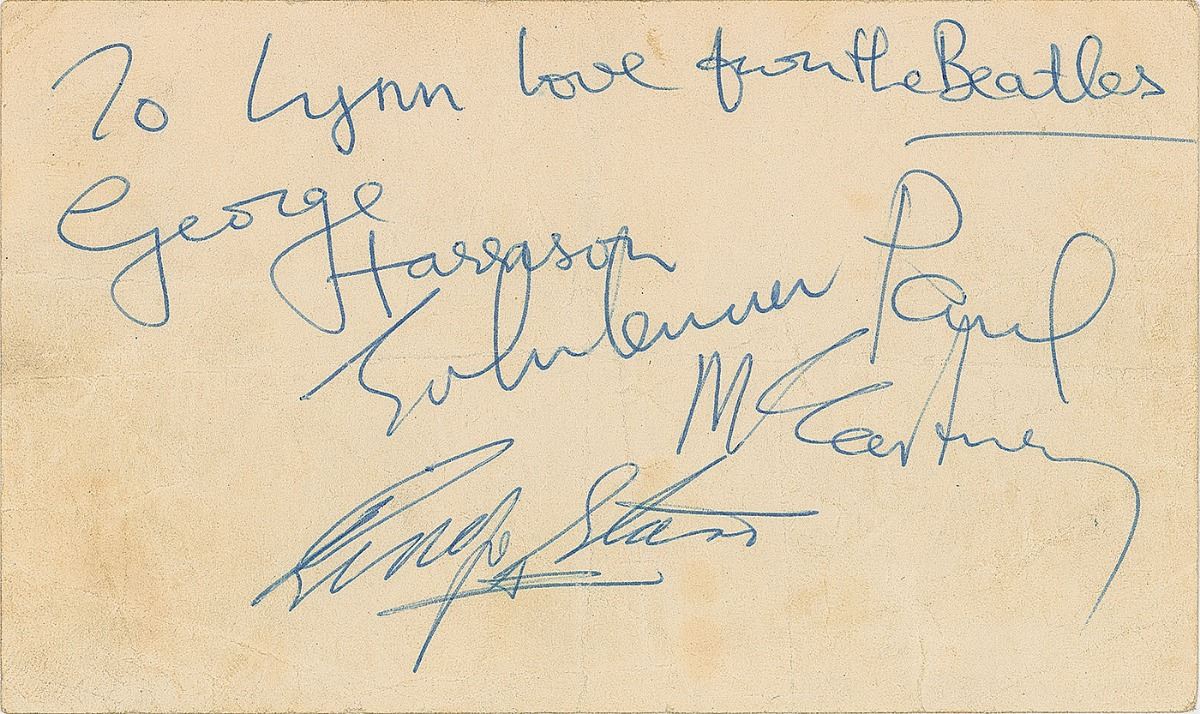 To Lynn love from the Beatles
George
Harrison
John Lennon
Paul
McCartney
Ringo Starr